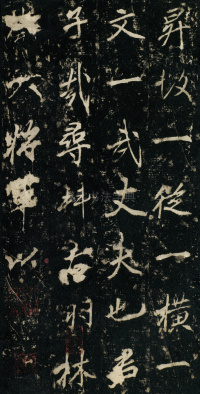 昇一從一橫一
文一武丈夫也君
子哉尋拜右羽林
大將軍以